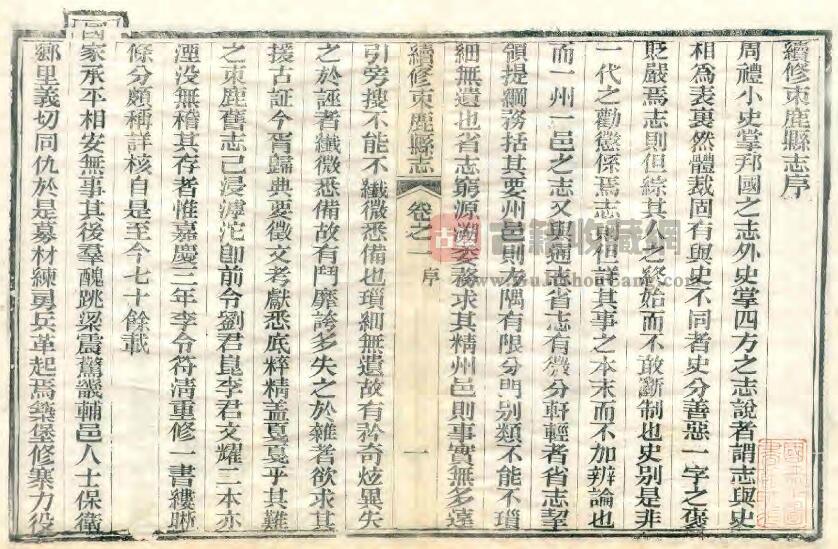 續修束鹿縣志序
周禮小史掌邦國之志外史掌四方之志說者謂志與史
相為表裏然體裁固有與史不同者史分善惡一字之褒
貶嚴焉志則但綜其人之終始而不敢斷制也史別是非
一代之勸懲係焉志則祗詳其事之本末而不加辨論也
而一州一邑之志又與通志省志有微分軒輊者省志挈
領提綱務括其要州邑則方隅有限分門別類不能不瑣
細無遺也省志窮源溯委務求其精州邑則事實無多遠
續修束鹿縣志
卷之一
序
一
引旁搜不能不纖微悉備也瑣細無遺故有矜奇炫異失
之於誣者纖微悉備故有鬥靡誇多失之於雜者欲求其
援古証今胥歸典要徵文考獻悉底粹精蓋戛戛乎其難
之束鹿舊志已浸滹沱卽前令劉君崑李君文耀二本亦
湮没無稽其存者惟嘉慶三年李令符清重修一書縷晰
條分頗稱詳核自是至今七十餘載
國家承平相安無事其後羣醜跳梁震驚畿輔邑人士保衛
鄉里義切同仇於是募材練勇兵革起焉築堡修寨力役
古籍收藏網